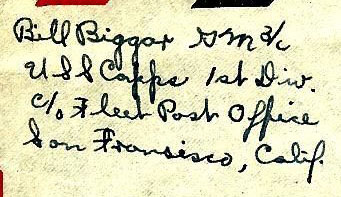 Bill Biggar GM 3/c
USS Capps 1st Div.
c/o Fleet Post Office
San Fransisco, Calif.